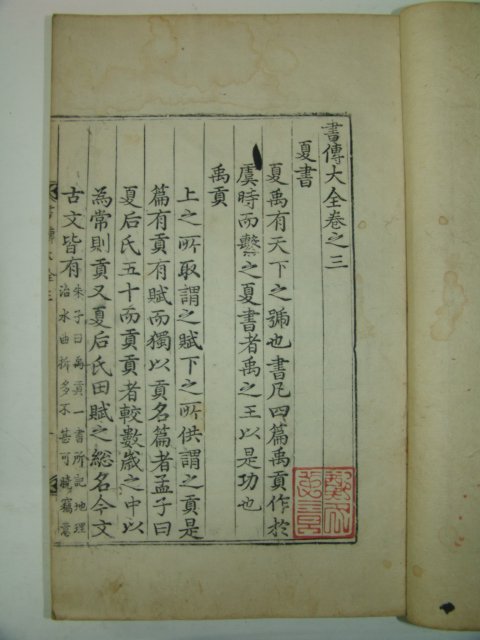 書傳大全卷之三
夏書
夏禹有天下之號也書凡四篇禹貢作於
虞時而繫之夏書者禹之王以是功也
禹貢
上之所取謂之賦下之所供謂之貢是
篇有貢有賦而獨以貢名篇者孟子曰
夏后氏五十而貢貢者較數歲之中以
為常則貢又夏后氏田賦之總名今文
古文皆有
朱子曰禹貢一書所記地理
治水曲折多不甚可曉竊意
書傳大全三